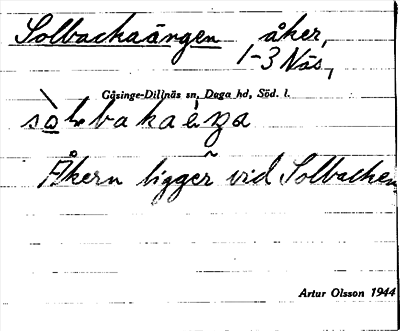 Solbackaängen åker,
1-3 Näs,
Gåsinge-Dillnäs sn, Daga hd, Söd. l.
Åkern ligger vid Solbacken
Artur Olsson 1944